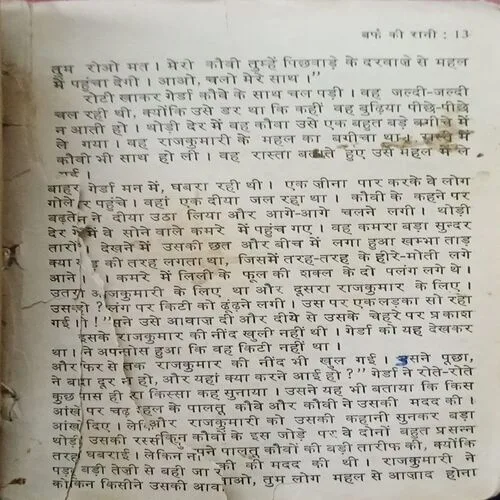 बर्फ की रानी : 13
तुम रोओ मत। मेरी कौवी तुम्हें पिछवाड़े के दरवाजे से महल
में पहुंचा देगी। आओ, चलो मेरे साथ।”
रोटी खाकर गेर्डा कौवे के साथ चल पड़ी। वह जल्दी-जल्दी
चल रही थी, क्योंकि उसे डर था कि कहीं वह बुढ़िया पीछे-पीछे
न आती हो। थोड़ी देर में वह कौवा उसे एक बहुत बड़े बगीचे में
ले गया। वह राजकुमारी के महल का बगीचा था।
कौवी भी साथ हो ली। वह रास्ता बताते हुए उसे महल में ले
बाहर गेर्डा मन में, घबरा रही थी। एक ज़ीना पार करके वे लोग
गोले पर पहुंचे। वहां एक दीया जल रहा था। कौवी के कहने पर
बढ़ते ने दीया उठा लिया और आगे-आगे चलने लगी। थोड़ी
देर में वे सोने वाले कमरे में पहुंच गए। वह कमरा बड़ा सुन्दर
तारों देखने में उसकी छत और बीच में लगा हुआ खम्भा ताड़
क्या की तरह लगता था, जिसमें तरह-तरह के हीरे-मोती लगे
आने कमरे में लिली के फूल की शक्ल के दो पलंग लगे थे।
उतरा जकुमारी के लिए था और दूसरा राजकुमार के लिए।
उस लंग पर किटी को ढूंढ़ने लगी। उस पर एक लड़का सो रहा
गई ने उसे आवाज़ दी और दीये से उसके चेहरे पर प्रकाश
इसके राजकुमार की नींद खुली नहीं थी। गेर्डा को यह देखकर
था। अफ़सोस हुआ कि वह किटी नहीं था।
और तक राजकुमार की नींद भी खुल गई। उसने पूछा,
ने हो, और यहां क्या करने आई हो?” गेर्डा ने रोते-रोते
कुछ रा किस्सा कह सुनाया। उसने यह भी बताया कि किस
आंखें पर चढ़ हल के पालतू कौवे और कौवी ने उसकी मदद की।
आंख दिए। और राजकुमारी को उसकी कहानी सुनकर बड़ा
थोड़ी उसकी कौवों के इस जोड़े पर वे दोनों बहुत प्रसन्न
तरह घबराई। लेकिन ने पालतू कौवों की बड़ी तारीफ की, क्योंकि
पड़ा बड़ी तेजी से बही जा र की की मदद की थी। राजकुमारी ने
लेकिन किसीने उसकी आवा ओ, तुम लोग महल से आज़ाद होना